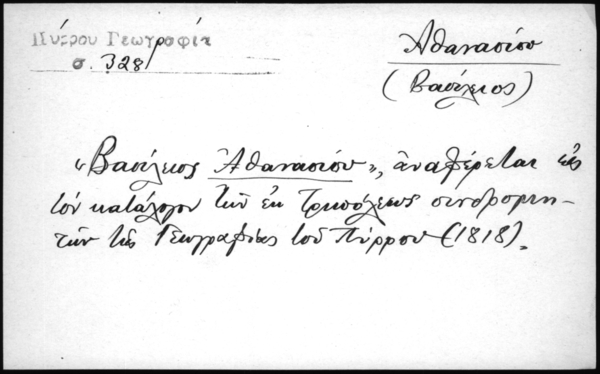 Πύρρου Γεωγραφία
σ. 328
Ἀθανασίου
(Βασίλειος)
«Βασίλειος Ἀθανασίου», ἀναφέρεται εἰς
τὸν κατάλογον τῶν ἐκ Τριπόλεως συνδρομη-
τῶν τῆς Γεωγραφίας τοῦ Πύρρου (1818).